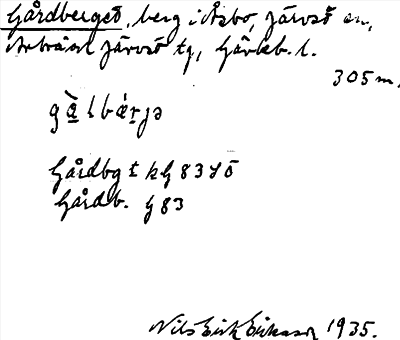 Gårdberget, berg i Åsbo, Järvsö sn,
Arbrå o. Järvsö tg, Gävleb. l.
305 m.
gà̱lbæ̀r̠jə
Gårdbg t kG 83 SÖ
Gårdb. G 83
Nils Erik Eriksson 1935.